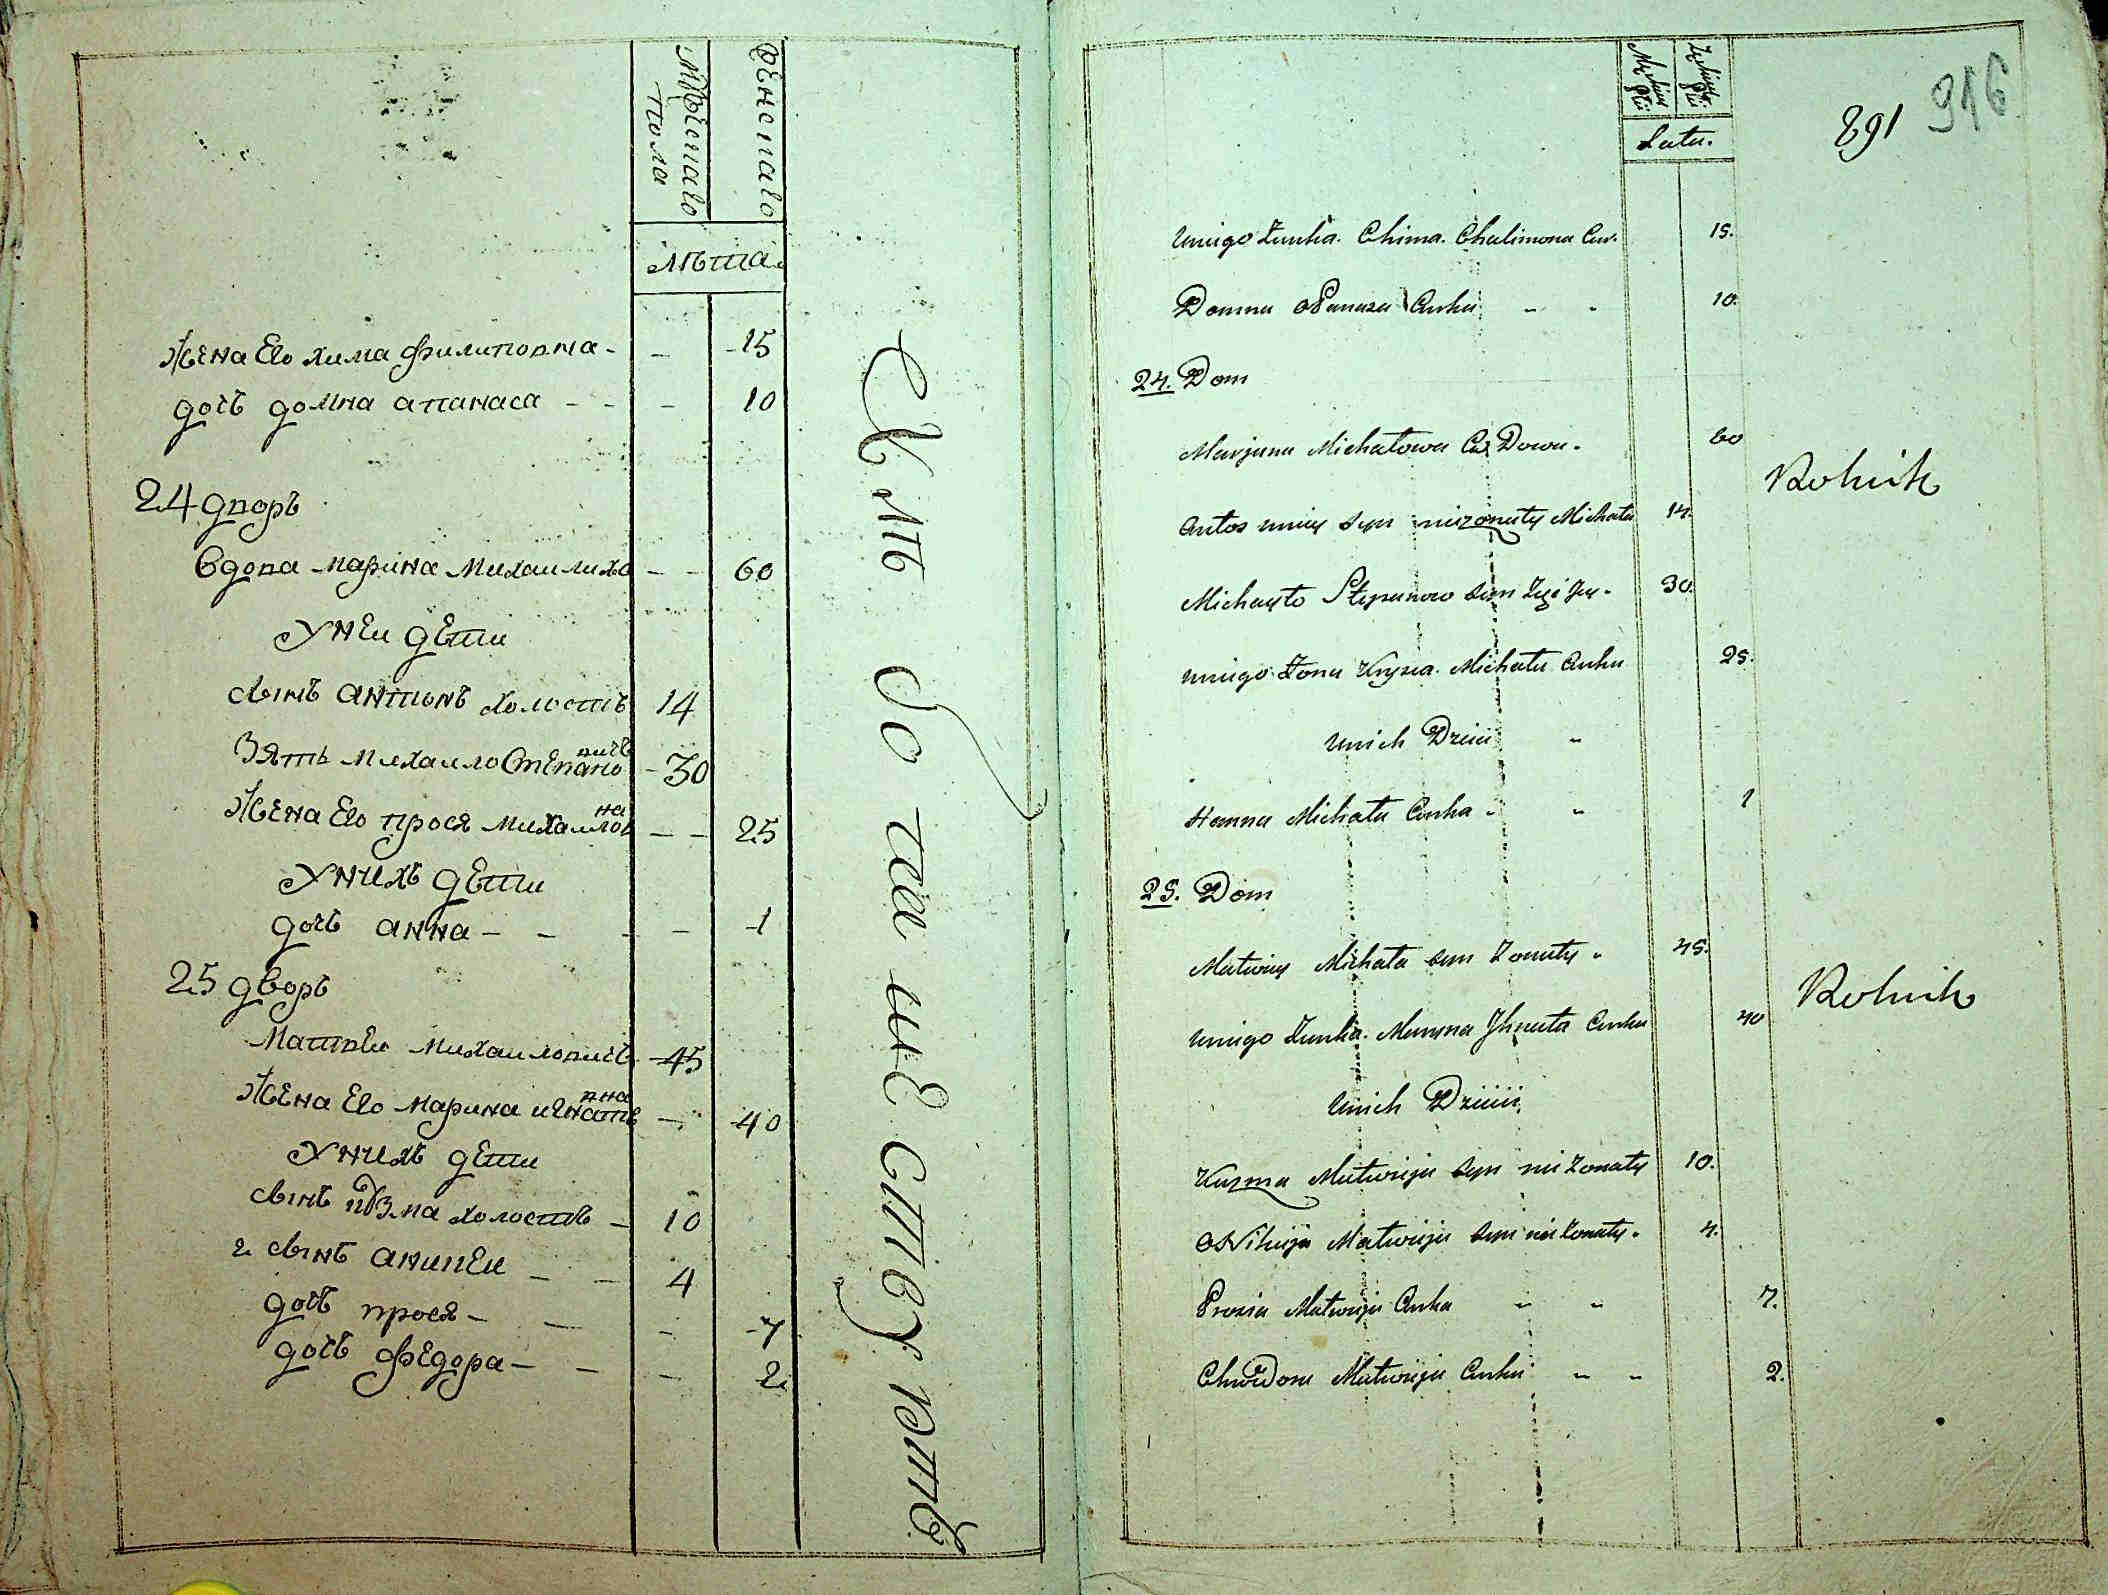 Мужескаго пола
Женскаго
лѣта
Жена Его хима филиповна - - 15
дочь домна апанаса - - - 10
24 дворъ
Вдова марина Михаилиха - - 60
У неи дети
сынъ антонъ холостъ 14
Зять михаило Степановичъ - 30
Жена Его прося михаиловна - - 25
У нихъ дети
дочь анна - - - - 1
25 дворъ
Матвеи михаиловичъ - 45
Жена Его марина игнатевна - 40
У нихъ дети
сынъ кузма холостъ - 10
2 сынъ аникеи - - 4
дочь прося - - - - 7
дочь федора - - - 2
Хлѣбо пашествуютъ
891 916
Męskiey Płci
Żeńskiey Płci
Lata.
Uniego Żonka. Chima. Chalimona Cur. 15.
Domna oPanasa Curka - - 10.
24. Dom
Marjana Michałowa Wdowa. 60
Rolnik
Antos uniey syn nieżonaty Michała 14.
Michayło Stepanow syn Zięć Jey. 30.
uniego Żona Prysia. Michała Curka 25.
Unich Dzieci -
Hanna Michała Curka - - 1
25. Dom
Matwiey Michała syn Żonaty. 45.
Rolnik
uniego Żonka. Maryna Jhnata Curka 40
Unich Dzieci
Kuzma Matwieja syn nie Żonaty 10.
oNikieja Matwieja syn nie Żonaty. 4.
Prosia Matwieja Curka - - 7.
Chwiedora Matwieja Curka - - 2.